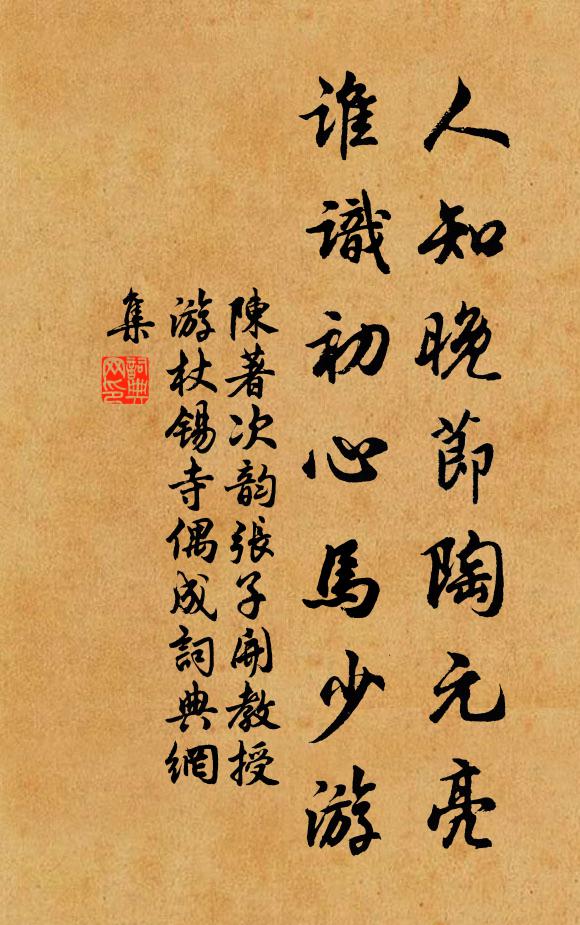 人知晚節陶元亮
誰識初心馬少游
陳著次韵張子開教授
游杖錫寺偶成詞典網
集
詞典
网印